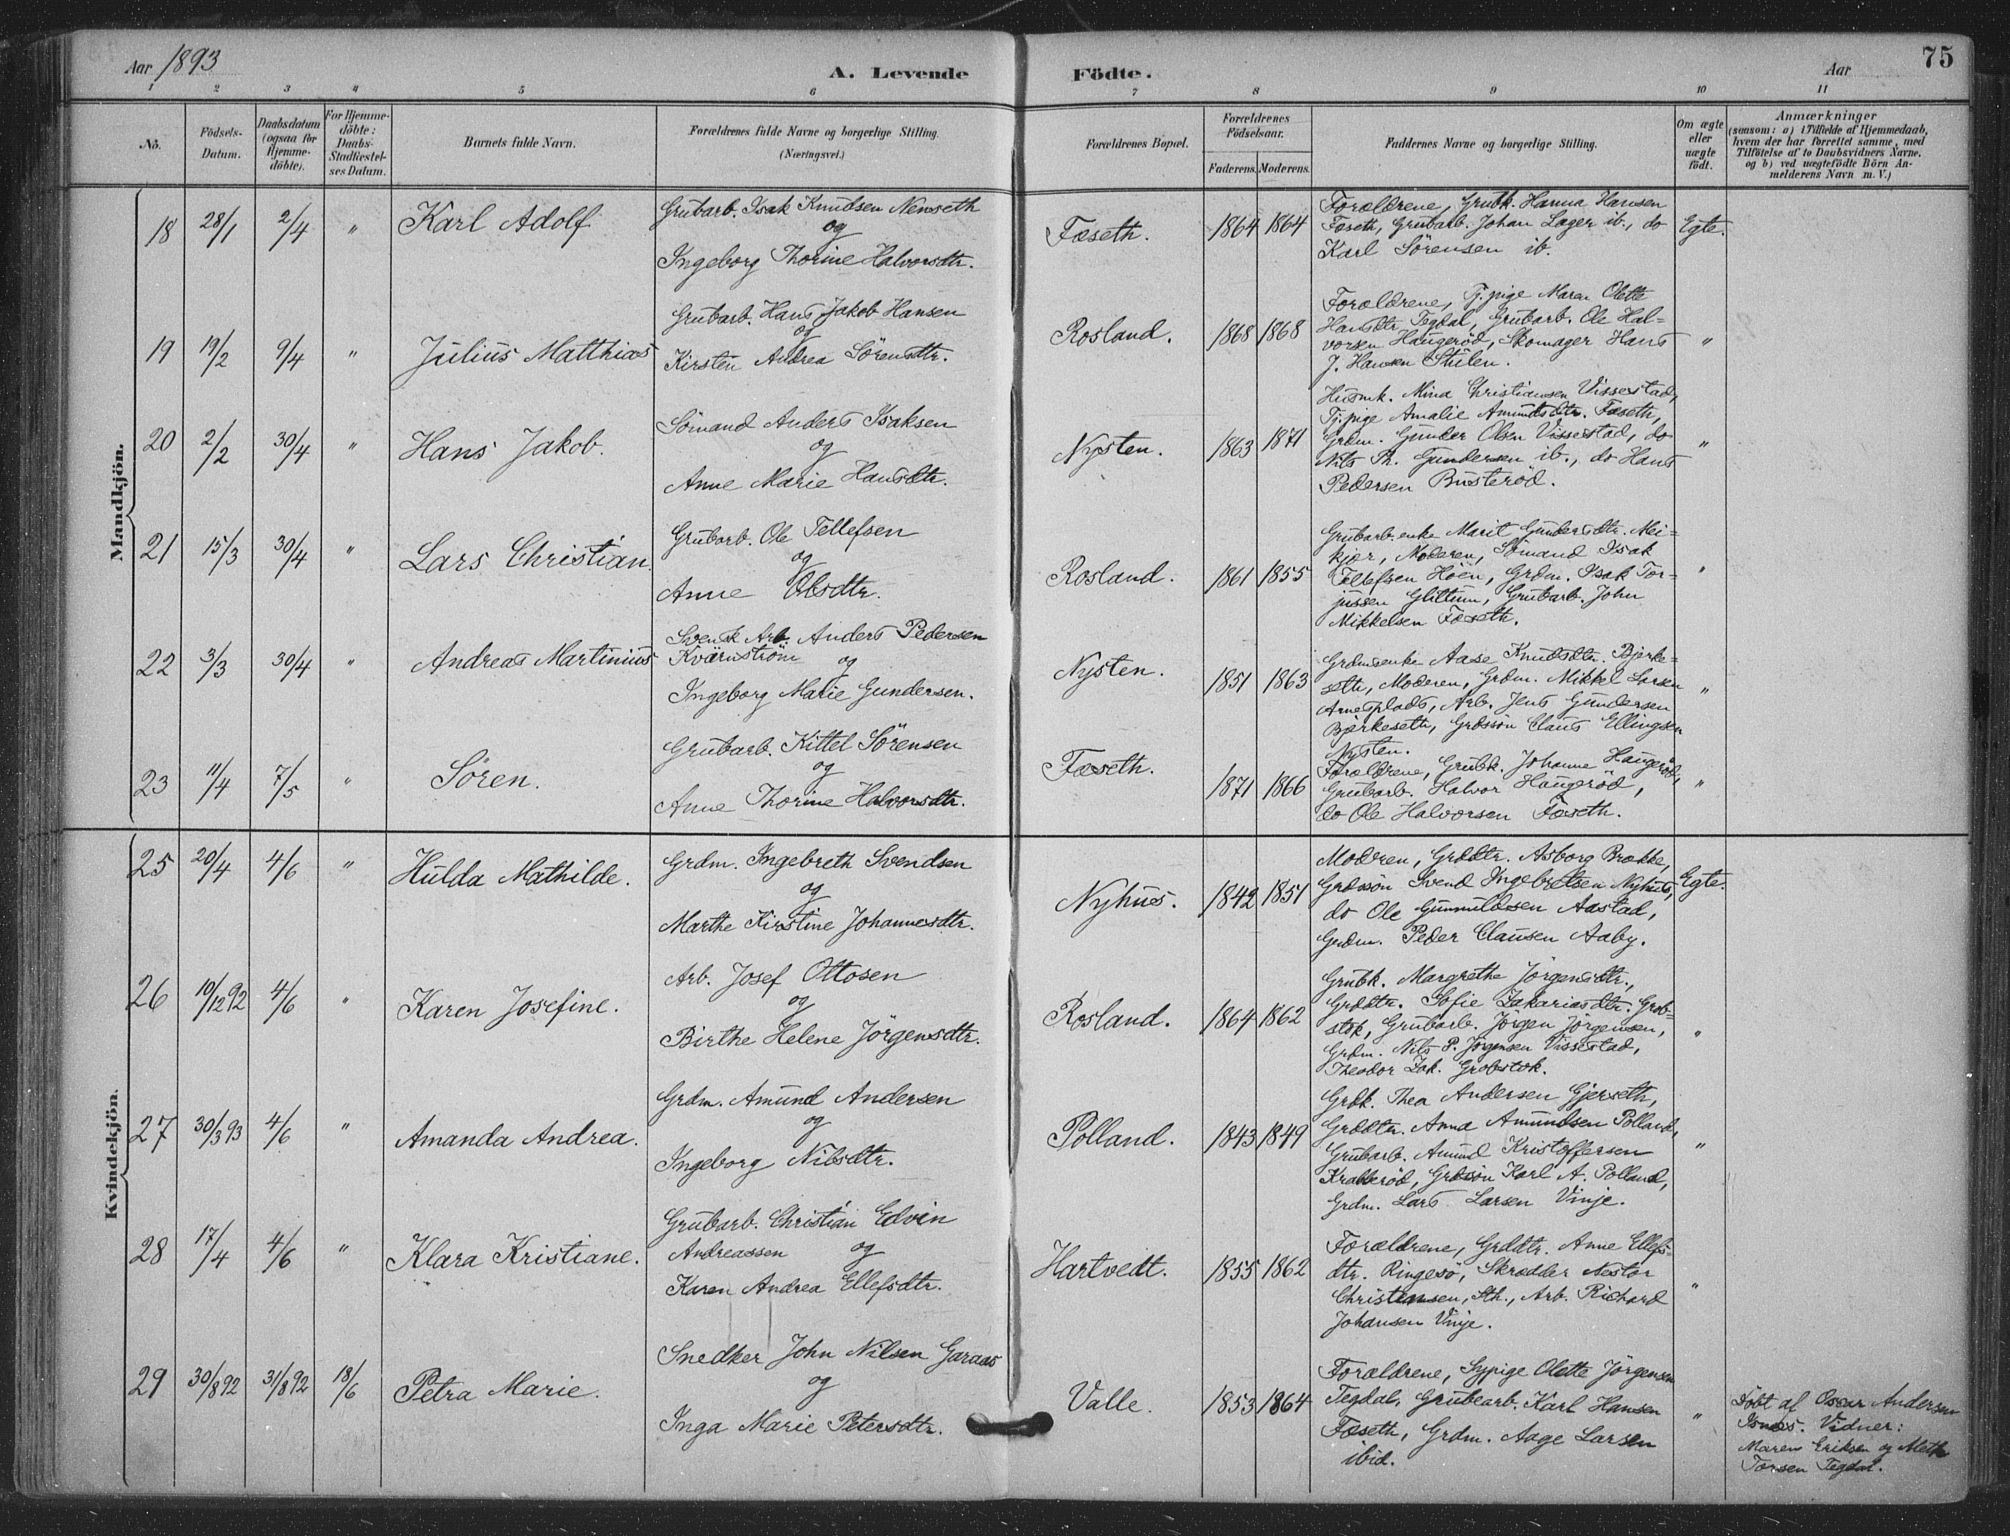 Aar 1893
A. Levende Födte.
Aar
75
1 2 3 4 5 6 7 8 9 10 11
No.
Födsels-
Datum.
Daabsdatum
(ogsaa för
Hjemme-
döbte).
For Hjemme-
döbte:
Daabs-
Stadfæstel-
ses Datum.
Barnets fulde Navn.
Forældrenes fulde Navne og borgerlige Stilling.
(Næringsvei.)
Forældrenes Bopæl.
Forældrenes
Födselsaar.
Faderens. Moderens.
Faddernes Navne og borgerlige Stilling.
Om ægte
eller
uægte
födt.
Anmærkninger
(saasom: a) i Tilfælde af Hjemmedaab,
hvem der har forrettet samme, med
Tilföielse af to Daabsvidners Navne,
og b) ved uægtefödte Börn An-
melderens Navn m. V.)
Mandkjön.
18 28/1 2/4 " Karl Adolf
Grubarb. Isak Knudsen Nenseth
og
Ingeborg Thorine Halvorsdtr.
Fæseth. 1864 1864
Forældrene, Grubk. Hanna Hansen
Fæseth, Grubarb. Johan Lager ib., do
Karl Sörensen ib.
Egte.
19 19/2 9/4 " Julius Matthias
Grubarb. Hans Jakob Hansen
og
Kirsten Andrea Sörensdtr.
Rosland. 1868 1868
Forældrene, Tj.pige Maren Olette
Hansdtr. Tegdal, Grubarb. Ole Hal-
vorsen Haugeröd, Skomager Hans
J. Hansen Stulen.
"
20 2/2 30/4 " Hans Jakob.
Sömand Anders Isaksen
og
Anne Marie Hansdtr.
Nysten. 1863 1871
Husmk. Mina Christiansen Visserstad,
Tj.pige Amalie Amundsdtr. Fæseth,
Grdm. Gunder Olsen Vissestad, do
Nils Th. Gundersen ib., do Hans
Pedersen Busteröd.
"
21 15/3 30/4 " Lars Christian.
Grubarb. Ole Tellefsen
og
Anne Olsdtr.
Rosland. 1861 1855
Grubarb.enke Marit Gundersdtr. Mei-
kjær, Moderen, Sömand Isak
Tellefsen Höen, Grdm. Isak Tor-
jussen Glittum, Grubarb. John
Mikkelsen Fæseth.
"
22 3/3 30/4 " Andreas Martinius
Svensk Arb. Anders Pedersen
Kvärnström og
Ingeborg Marie Gundersen.
Nysten. 1851 1863
Grdmsenke Aase Knudsdtr. Bjerke-
seth, Moderen, Grdm. Mikkel Larsen
Arnesplads, Arb. Jens Gundersen
Bjerkeseth, Grdssön Claus Ellingsen
Nysten.
"
23 11/4 7/5 " Sören.
Grubarb. Kittel Sörensen
og
Anne Thorine Halvorsdtr.
Fæseth. 1871 1866
Forældrene, Grubk. Johanne Haugeröd,
Grubarb. Halvor Haugeröd,
do Ole Halvorsen Fæseth.
"
Kvindekjön.
25 20/4 4/6 " Hulda Mathilde.
Grdm. Ingebreth Svendsen
og
Marthe Kirstine Johannesdtr.
Nyhus. 1842 1851
Moderen, Grddtr. Asborg Brække,
Grdssön Svend Ingebretsen Nyhus,
do Ole Gunnuldsen Aastad,
Grdm. Peder Clausen Aaby.
Egte.
26 10/12 92 4/6 " Karen Josefine.
Arb. Josef Ottosen
og
Birthe Helene Jörgensdtr.
Rosland. 1864 1862
Grubk. Margrethe Jörgensdtr.,
Grddtr. Sofie Zakariasdtr. Grob-
stok, Grubarb. Jörgen Jörgensen,
Grdm. Nils P. Jörgensen Vissestad,
Theodor Zak. Grobstok.
"
27 30/3 93 4/6 " Amanda Andrea.
Grdm. Amund Andersen
og
Ingeborg Nilsdtr.
Polland. 1843 1849
Grdk. Thea Andersen Gjerseth,
Grddtr. Anna Amundsen Polland,
Grubarb. Amund Kristoffersen
Krabberöd, Grdssön Karl A. Polland,
Grdm. Lars Larsen Vinje.
"
28 17/4 4/6 " Klara Kristiane.
Grubarb. Christian Edvin
Andreassen og
Karen Andrea Ellefsdtr.
Hartvedt. 1855 1862
Forældrene, Grddtr. Anne Ellefs-
dtr. Ringesö, Skrædder Nestor
Christensen, Sth., Arb. Richard
Johansen Vinje.
"
29 30/8 92 31/8 92 18/6 Petra Marie.
Snedker John Nilsen Garaas
og
Inga Marie Petersdtr.
Valle. 1853 1864
Forældrene, Sypige Olette Jörgensen
Tegdal, Grubearb. Karl Hansen
Fæseth, Grdm. Aage Larsen
ibid.
"
Döbt af Oscar Andersen
Isnæs. Vidner:
Maren Eriksen og Methe
Torsen Tegdal.